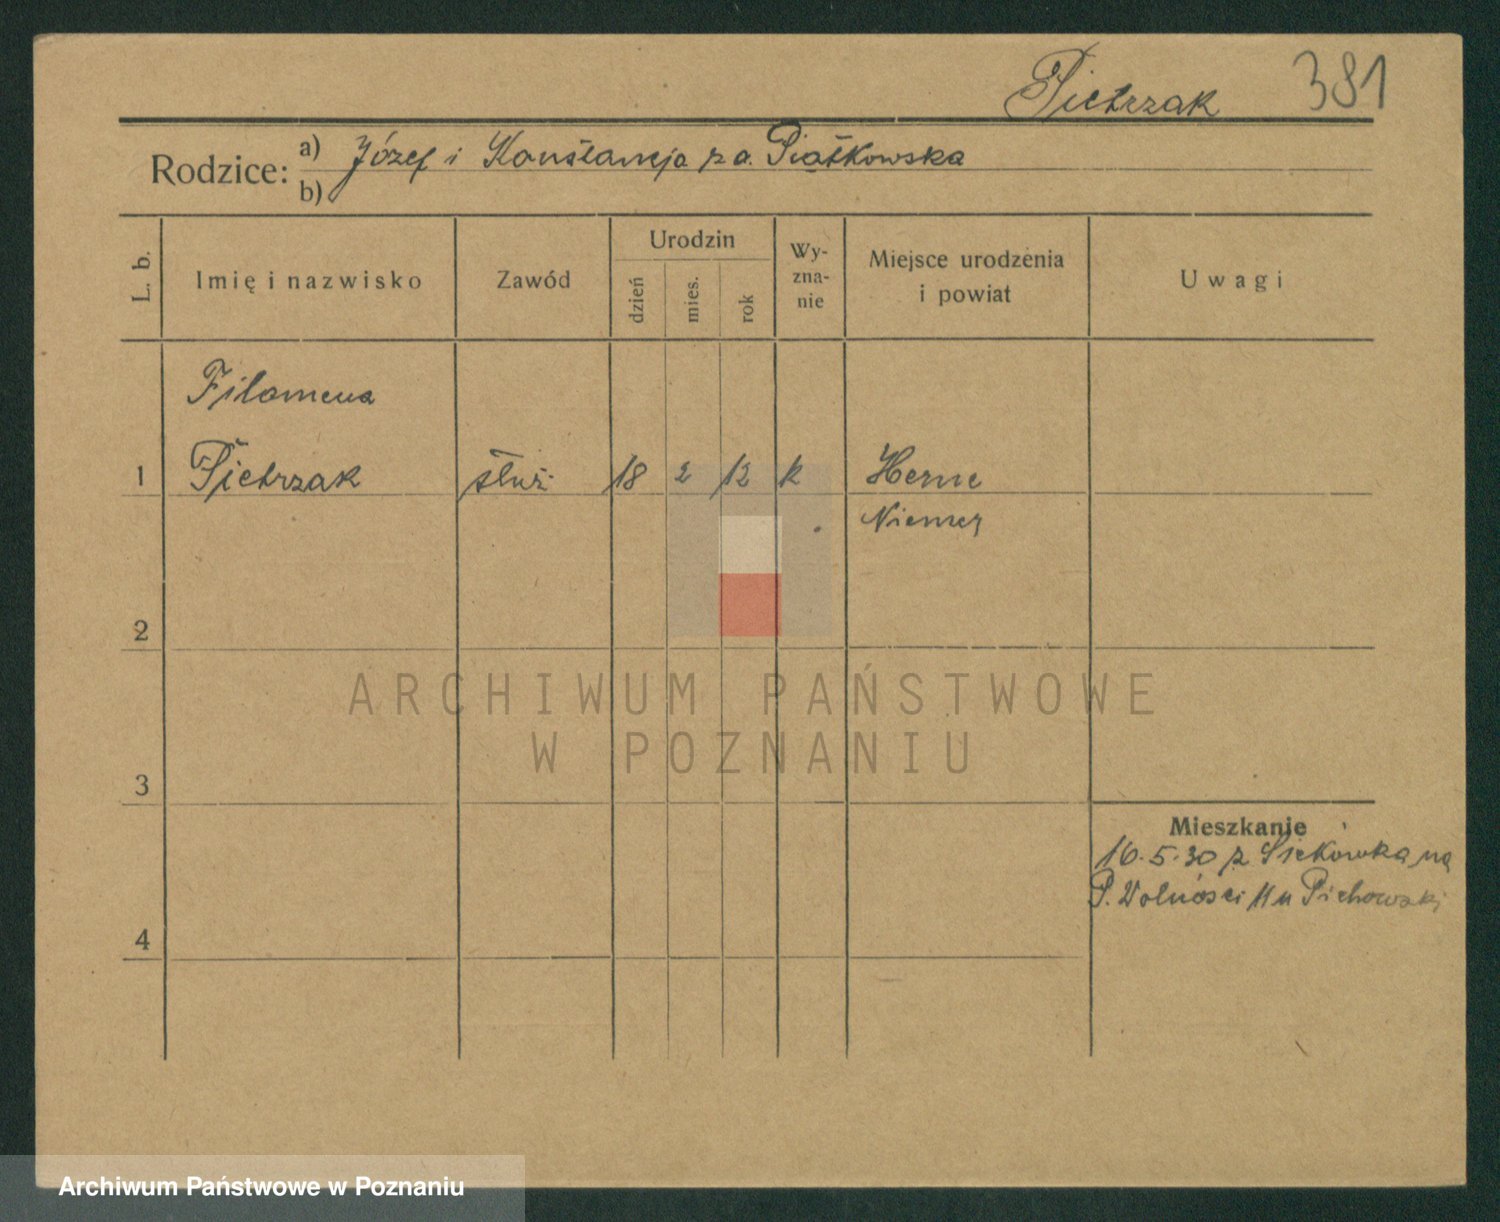 Pietrzak 381
Rodzice: a) Józef i Konstancja z d. Piątkowska
b)
L. b. Imię i nazwisko Zawód Urodzin dzień mies. rok Wy-zna-nie Miejsce urodzenia i powiat Uwagi
Filomena
1 Pietrzak służ. 18 2 12 k Herne
Niemcy
2
ARCHIWUM PAŃSTWOWE
W POZNANIU
3
Mieszkanie
16.5.30 z Siekówka na
P. Wolności 11 u Pichowski
4
Archiwum Państwowe w Poznaniu